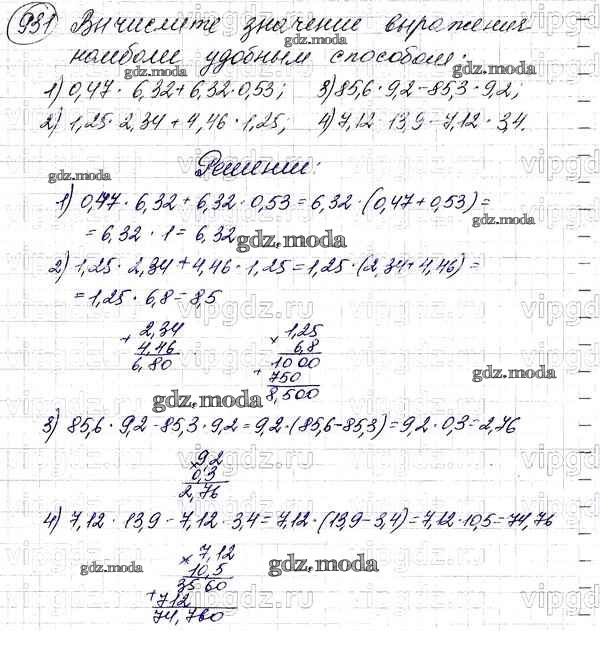 931 Вычислите значение выражения
наиболее удобным способом:
gdz.moda
1) 0,47 · 6,32 + 6,32 · 0,53; 3) 85,6 · 9,2 - 85,3 · 9,2;
gdz.moda gdz.moda
2) 1,25 · 2,34 + 4,46 · 1,25; 4) 7,12 · 13,9 - 7,12 · 3,4.
Решение:
gdz.moda
1) 0,47 · 6,32 + 6,32 · 0,53 = 6,32 · (0,47 + 0,53) =
gdz.moda
= 6,32 · 1 = 6,32
gdz.moda
2) 1,25 · 2,34 + 4,46 · 1,25 = 1,25 · (2,34 + 4,46) =
= 1,25 · 6,8 = 8,5
vipgdz.ru vipgdz.ru vipgdz.ru
+ 2,34 × 1,25
4,46 6,8
6,80 1000
gdz.moda
+ 750
8,500
gdz.moda
3) 85,6 · 9,2 - 85,3 · 9,2 = 9,2 · (85,6 - 85,3) = 9,2 · 0,3 = 2,76
× 9,2
0,3
2,76
4) 7,12 · 13,9 - 7,12 · 3,4 = 7,12 · (13,9 - 3,4) = 7,12 · 10,5 = 74,76
× 7,12
gdz.moda gdz.moda gdz.moda
10,5
3560
+ 712
74,760